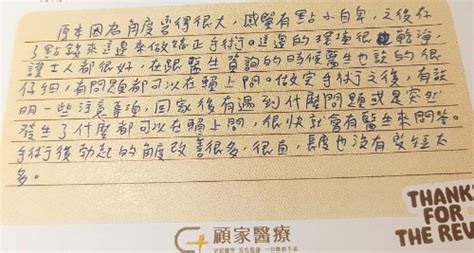 原本因為角度彎得很大，感覺有點小自卑，之後在
了點發來這邊來做矯正手術。這邊的環境很乾淨，
護士人都很好，在跟醫生資詢的時候醫生也說的很
仔細，有問題都可以在賴上問。做完手術之後，有說
明一些注意事項，回家後有遇到什麼問題或是突然
發生了什麼都可以在賴上問，很快就會有醫生來回答。
手術後勃起的角度改善很多，很直，長度也沒有變短太
多。
THANK
FOR
THE REV
顧家醫療